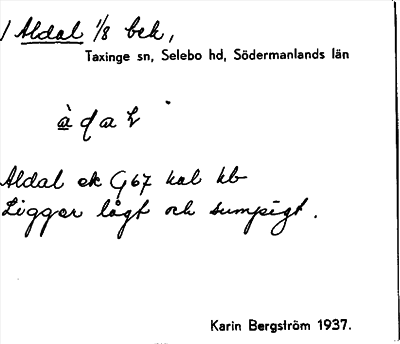 / Aldal 1/8 bek,
Taxinge sn, Selebo hd, Södermanlands län
Aldal ek G67 kal kb
Ligger lågt och sumpigt.
Karin Bergström 1937.